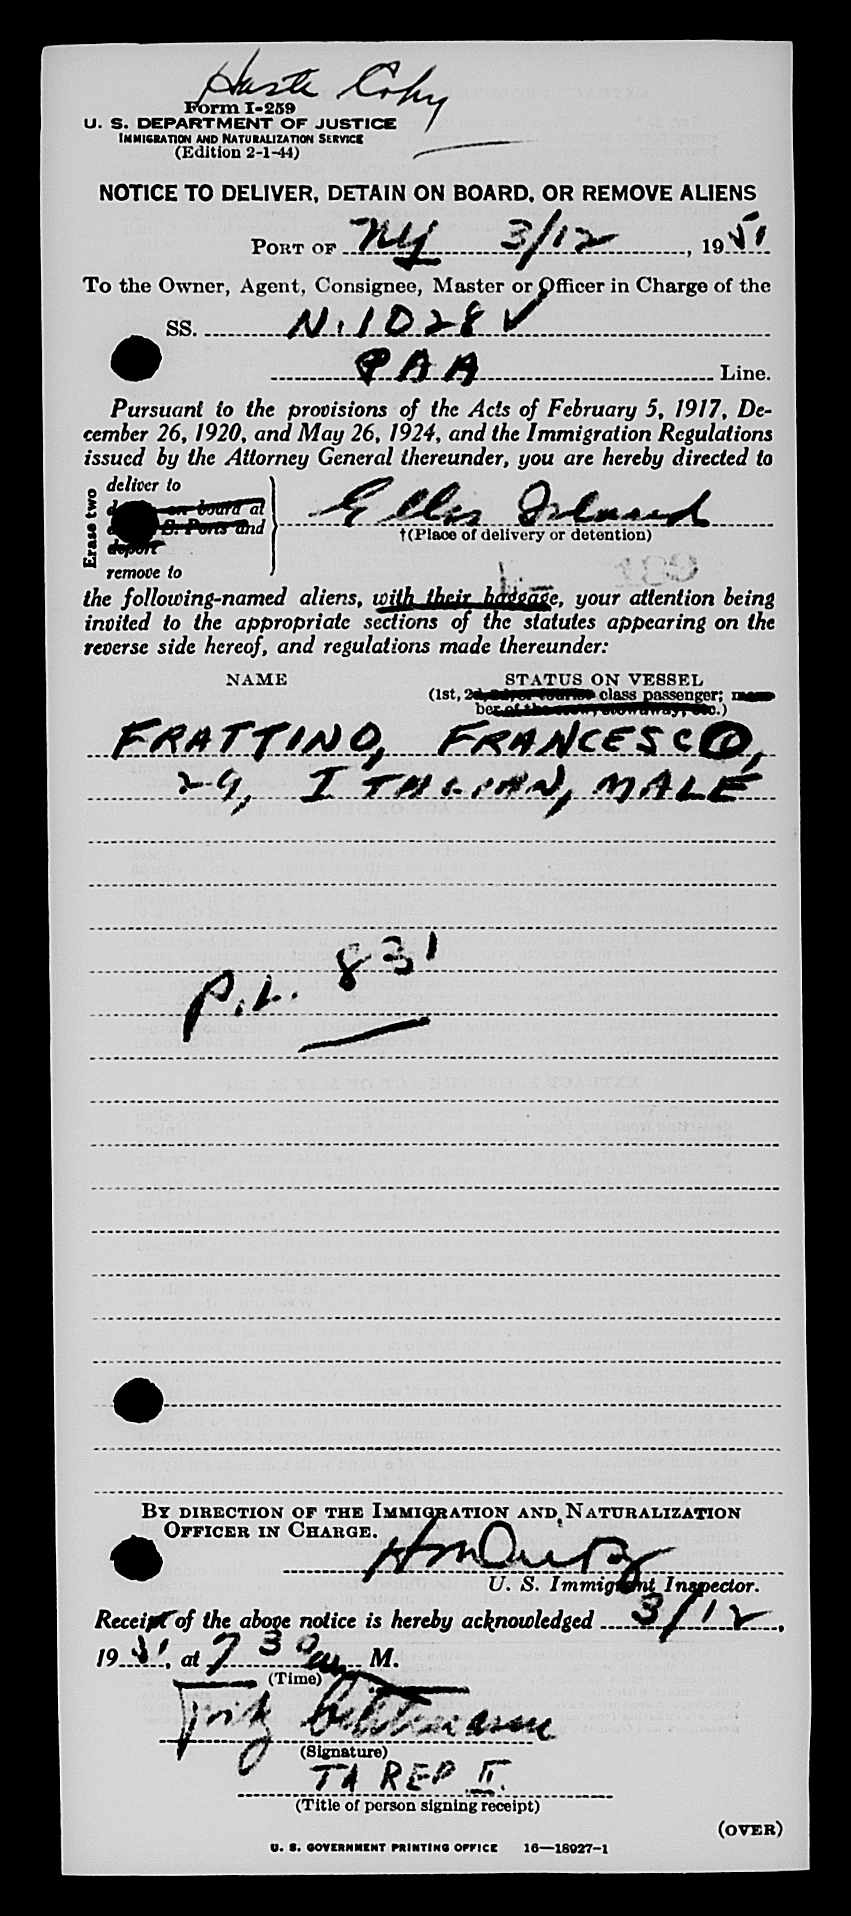 Haste Copy
Form I-259
U. S. DEPARTMENT OF JUSTICE
IMMIGRATION AND NATURALIZATION SERVICE
(Edition 2-1-44)
NOTICE TO DELIVER, DETAIN ON BOARD, OR REMOVE ALIENS
PORT OF NY 3/12, 1951
To the Owner, Agent, Consignee, Master or Officer in Charge of the
SS. N.1028V
PAA Line.
Pursuant to the provisions of the Acts of February 5, 1917, De-
cember 26, 1920, and May 26, 1924, and the Immigration Regulations
issued by the Attorney General thereunder, you are hereby directed to
Erase two
deliver to
on board at
S. Ports and
deport
remove to
Ellis Island
†(Place of delivery or detention)
the following-named aliens, with their baggage, your attention being
invited to the appropriate sections of the statutes appearing on the
reverse side hereof, and regulations made thereunder:
NAME STATUS ON VESSEL
(1st, 2d, 3d, or tourist class passenger; mem-
ber of the crew, stowaway, etc.)
FRATTINO, FRANCESCO,
29, ITALIAN, MALE
P.L. 831
BY DIRECTION OF THE IMMIGRATION AND NATURALIZATION
OFFICER IN CHARGE.
U. S. Immigrant Inspector.
Receipt of the above notice is hereby acknowledged 3/12,
1951, at 7 30 am M.
(Time)
(Signature)
TA REP II.
(Title of person signing receipt)
(OVER)
U. S. GOVERNMENT PRINTING OFFICE 16—18927-1